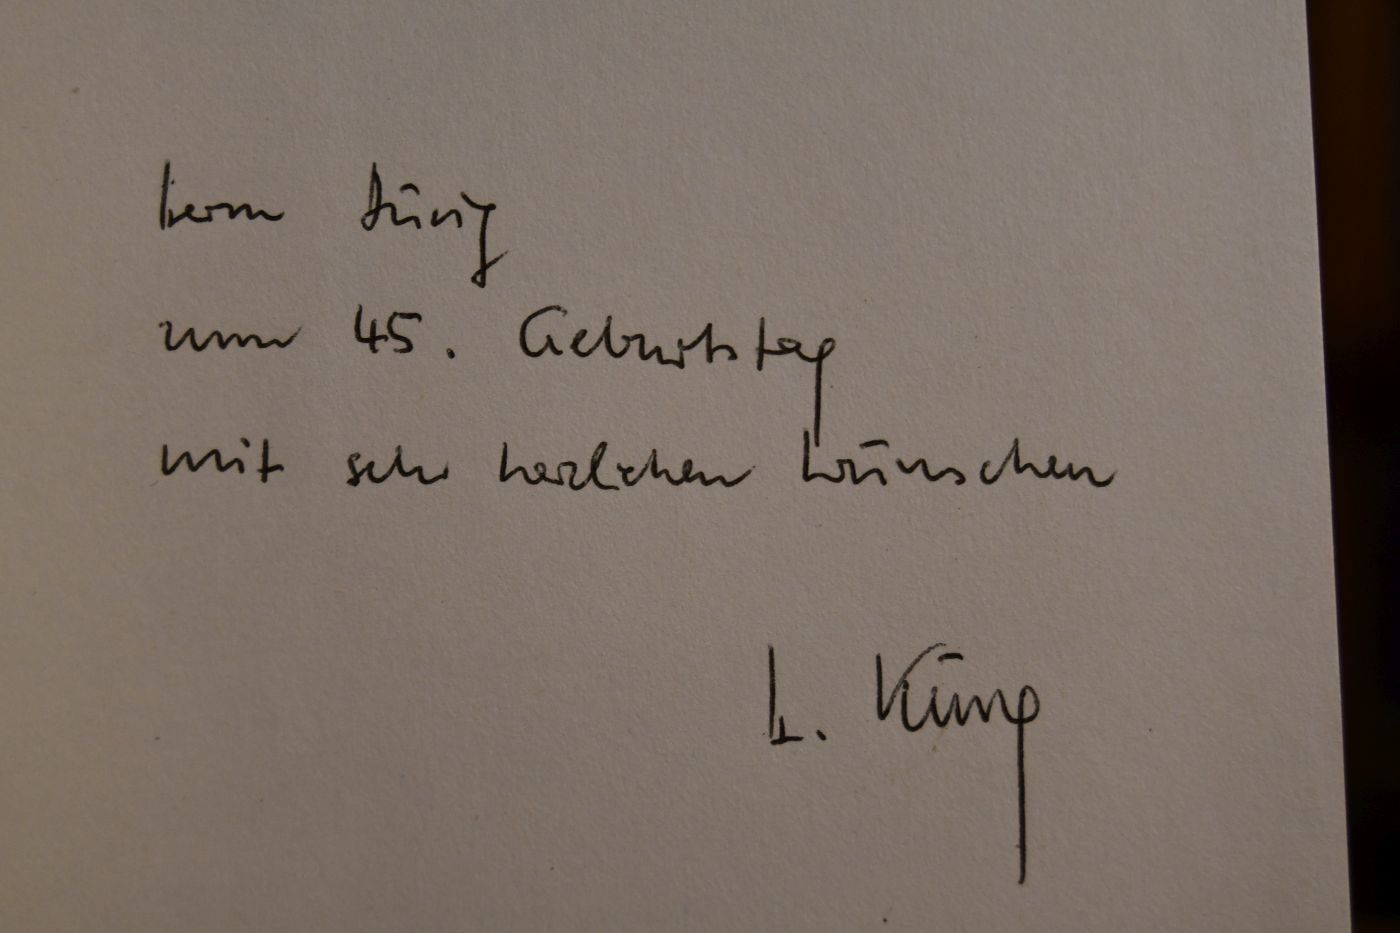 Herrn Dürig
zum 45. Geburtstag
mit sehr herzlichen Wünschen
H. Küng